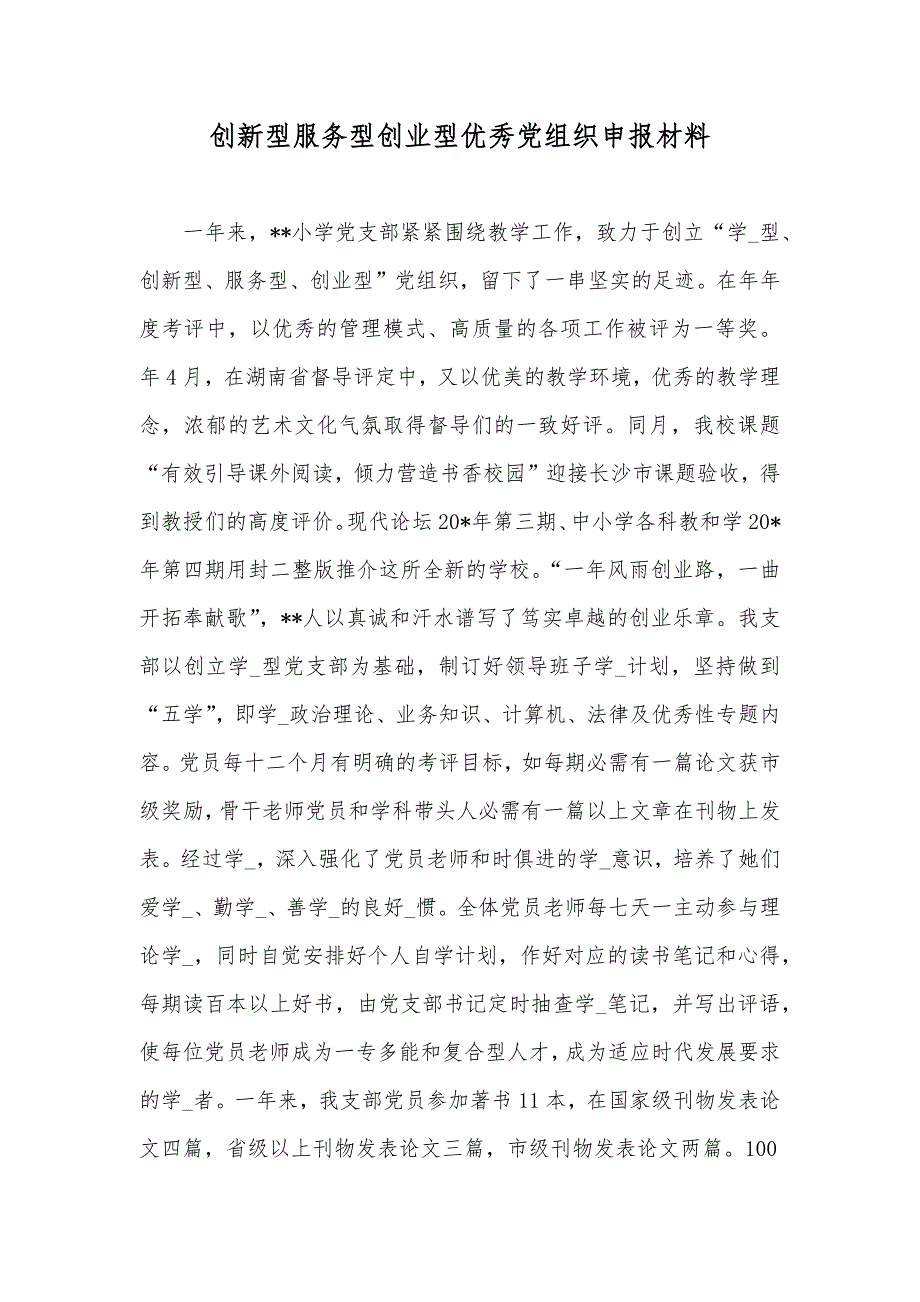 创新型服务型创业型优秀党组织申报材料
一年来，**小学党支部紧紧围绕教学工作，致力于创立“学_型、
创新型、服务型、创业型”党组织，留下了一串坚实的足迹。在年年
度考评中，以优秀的管理模式、高质量的各项工作被评为一等奖。
年4月，在湖南省督导评定中，又以优美的教学环境，优秀的教学理
念，浓郁的艺术文化气氛取得督导们的一致好评。同月，我校课题
“有效引导课外阅读，倾力营造书香校园”迎接长沙市课题验收，得
到教授们的高度评价。现代论坛20*年第三期、中小学各科教和学20*
年第四期用封二整版推介这所全新的学校。“一年风雨创业路，一曲
开拓奉献歌”，**人以真诚和汗水谱写了笃实卓越的创业乐章。我支
部以创立学_型党支部为基础，制订好领导班子学_计划，坚持做到
“五学”，即学_政治理论、业务知识、计算机、法律及优秀性专题内
容。党员每十二个月有明确的考评目标，如每期必需有一篇论文获市
级奖励，骨干老师党员和学科带头人必需有一篇以上文章在刊物上发
表。经过学_，深入强化了党员老师和时俱进的学_意识，培养了她们
爱学_、勤学_、善学_的良好_惯。全体党员老师每七天一主动参与理
论学_，同时自觉安排好个人自学计划，作好对应的读书笔记和心得，
每期读百本以上好书，由党支部书记定时抽查学_笔记，并写出评语，
使每位党员老师成为一专多能和复合型人才，成为适应时代发展要求
的学_者。一年来，我支部党员参加著书11本，在国家级刊物发表论
文四篇，省级以上刊物发表论文三篇，市级刊物发表论文两篇。100